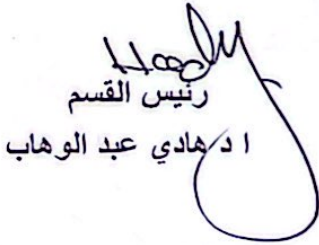 Hady
رئيس القسم
ا د هادي عبد الوهاب